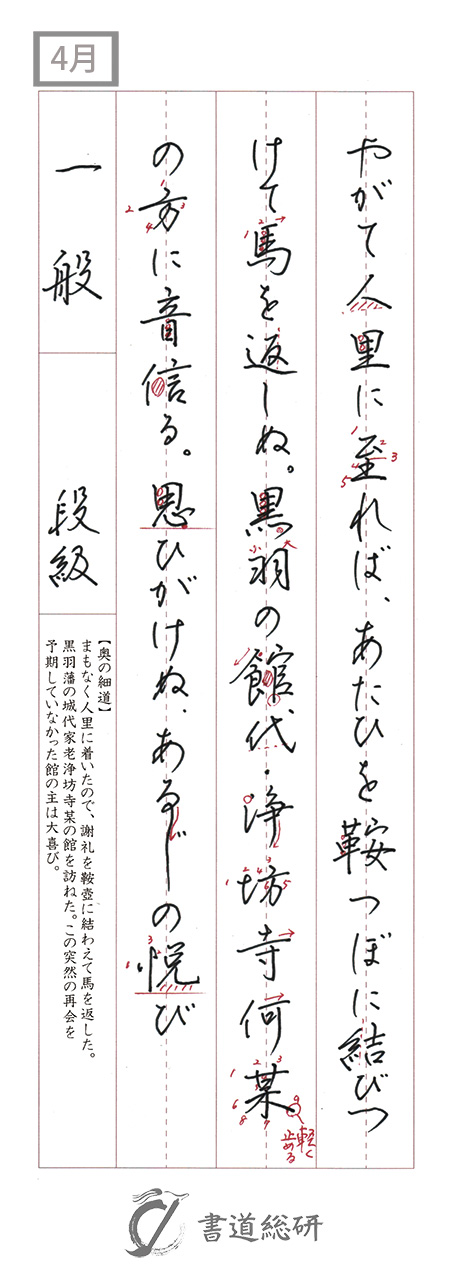 4月
やがて人里に至れば、あたひを鞍つぼに結びつ
けて馬を返しぬ。黒羽の館代・浄坊寺何某
の方に音信る。思ひがけぬ、あるじの悦び
軽く
止める
小
大
一般
段級
【奥の細道】
まもなく人里に着いたので、謝礼を鞍壺に結わえて馬を返した。
黒羽藩の城代家老浄坊寺某の館を訪ねた。この突然の再会を
予期していなかった館の主は大喜び。
書道総研